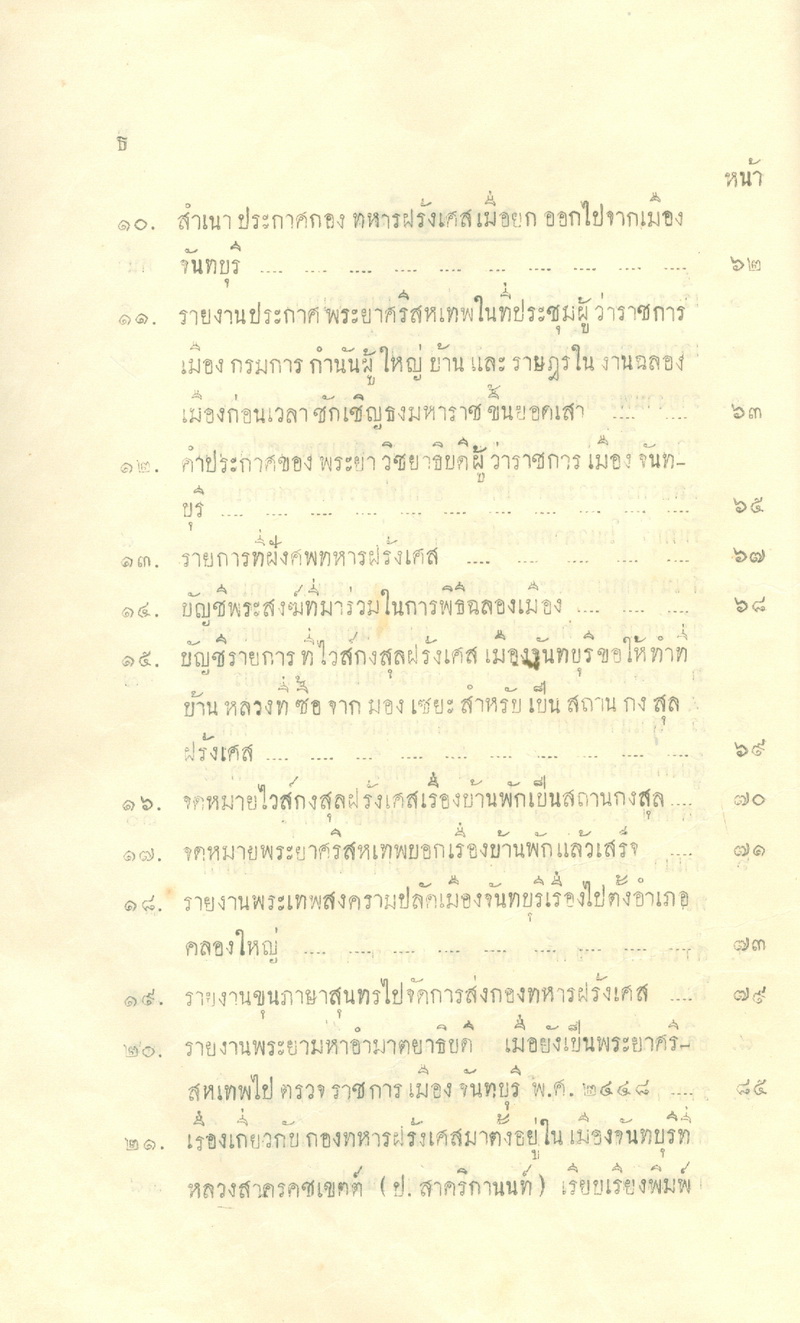 ธ
หน้า
๑๐. สำเนา ประกาศกอง ทหารฝรั่งเศส เมื่อยก ออกไปจากเมือง
จันทบุรี .... .... .... .... .... .... .... .... .... .... ๖๒
๑๑. รายงานประกาศ พระยาศรีสหเทพในที่ประชุมผู้ ว่าราชการ
เมือง กรมการ กำนันผู้ ใหญ่ บ้าน และ ราษฎรใน งานฉลอง
เมืองก่อนเวลา ชักเชิญธงมหาราช ขึ้นยอดเสา .... .... ๖๓
๑๒. คำประกาศของ พระยา วิชยาธิบดีผู้ ว่าราชการ เมือง จันท-
บุรี .... .... .... .... .... .... .... .... .... .... .... ๖๕
๑๓. รายการที่ฝังศพทหารฝรั่งเศส .... .... .... .... .... ๖๗
๑๔. บัญชีพระสงฆ์ที่มาร่วมในการพิธีฉลองเมือง .... .... .... ๖๘
๑๕. บัญชีรายการ ที่ ไวส์กงสุลฝรั่งเศส เมืองจันทบุรี ขอให้ ทำที่
บ้าน หลวงที่ ซื้อ จาก มอง เซยะ สำหรับ เป็น สถาน กง สุล
ฝรั่งเศส .... .... .... .... .... .... .... .... .... .... ๖๙
๑๖. จดหมายไวส์กงสุลฝรั่งเศสเรื่องบ้านพักเป็นสถานกงสุล .... ๗๐
๑๗. จดหมายพระยาศรีสหเทพบอกเรื่องบ้านพักแล้วเสร็จ .... ๗๑
๑๘. รายงานพระเทพสงครามปลัดเมืองจันทบุรีเรื่องไปตั้งอำเภอ
คลองใหญ่ .... .... .... .... .... .... .... .... .... ๗๓
๑๙. รายงานขุนภาษาสุนทรไปจัดการส่งกองทหารฝรั่งเศส .... ๗๙
๒๐. รายงานพระยามหาอำมาตยาธิบดี เมื่อยังเป็นพระยาศรี-
สหเทพไป ตรวจ ราชการ เมือง จันทบุรี พ.ศ. ๒๔๔๘ .... ๘๕
๒๑. เรื่องเกี่ยวกับ กองทหารฝรั่งเศสมาตั้งอยู่ ใน เมืองจันทบุรีที่
หลวงสาครคชเขตต์ ( ป. สาคริกานนท์ ) เรียบเรียงพิมพ์